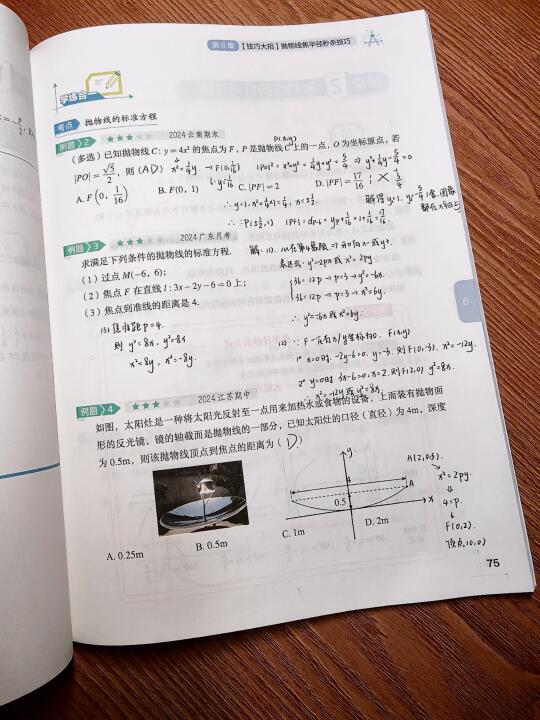 第6章 【技巧大招】抛物线焦半径秒杀技巧
学练合一
考点 抛物线的标准方程
例题 2 ★★★ 2024云南期末
P(x,y)
(多选)已知抛物线C: y=4x²的焦点为F, P是抛物线C上的一点, O为坐标原点, 若
|PO|=√5/2, 则(AD) x²=1/4y → F(0,1/16) |PO|²=x²+y²=1/4y+y²=5/4 ⇒ y²+1/4y-5/4=0
A. F(0, 1/16) B. F(0, 1) C. |PF|=2 D. |PF|=17/16
∴y=1, x²=1/4×1=1/4, x=±1/2
解得y=1,
∴P(±1/2,1) |PF|=dP-l=yP+1/16=1+1/16=17/16
例题 3 ★★★ 2024广东月考
求满足下列条件的抛物线的标准方程.
(1) 过点M(-6, 6);
(2) 焦点F在直线l: 3x-2y-6=0上;
(3) 焦点到准线的距离是4.
解: (1). M在第二象限 ⇒ 开口向x-或y+.
表达式: y²=-2px或x²=2py.
36=12p → p=3 → y²=-6x.
36=12p → p=3 → x²=6y.
∴ y²=-6x或x²=6y
(2) ∵ F一定有x/y坐标为0, F(x,y)
1° x=0时. -2y-6=0. y=-3. 则F(0,-3). x²=-12y.
2° y=0时 3x-6=0, x=2. 则F(2,0) y²=8x.
∴ x²=-12y或y²=8x.
(3) 焦准距p=4.
则 y²=8x, y²=-8x
x²=8y, x²=-8y.
例题 4 ★★★ 2024江苏期中
如图, 太阳灶是一种将太阳光反射至一点用来加热水或食物的设备, 上面装有抛物面
形的反光镜, 镜的轴截面是抛物线的一部分, 已知太阳灶的口径(直径)为4m, 深度
为0.5m, 则该抛物线顶点到焦点的距离为(D)
y
4
A
0.5
x
A(2,0.5).
x²=2py.
4=p.
F(0,2).
顶点(0,0)
A. 0.25m B. 0.5m C. 1m D. 2m
6
75